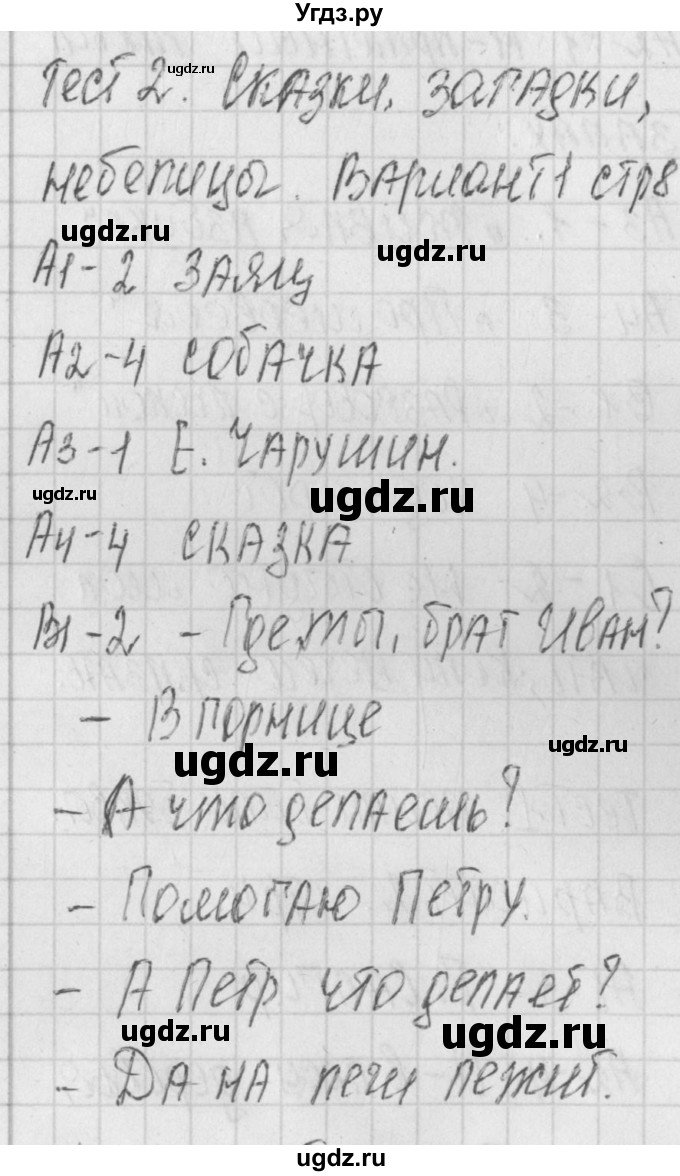 Угдз.ру
Тест 2. Сказки, загадки,
ugdz.ru
небелицы. Вариант 1 стр 8
ugdz.ru
ugdz.ru
А1-2 ЗАЯЦ
А2-4 СОБАЧКА
А3-1 Е. ЧАРУШИН.
ugdz.ru
ugdz.ru
А4-4 СКАЗКА
В1-2 - Где ты, брат Иван?
- В горнице
ugdz.ru
ugdz.ru
- А что делаешь?
- Помогаю Петру.
- А Петр что делает?
ugdz.ru
ugdz.ru
- Да на печи лежит.
ugdz.ru